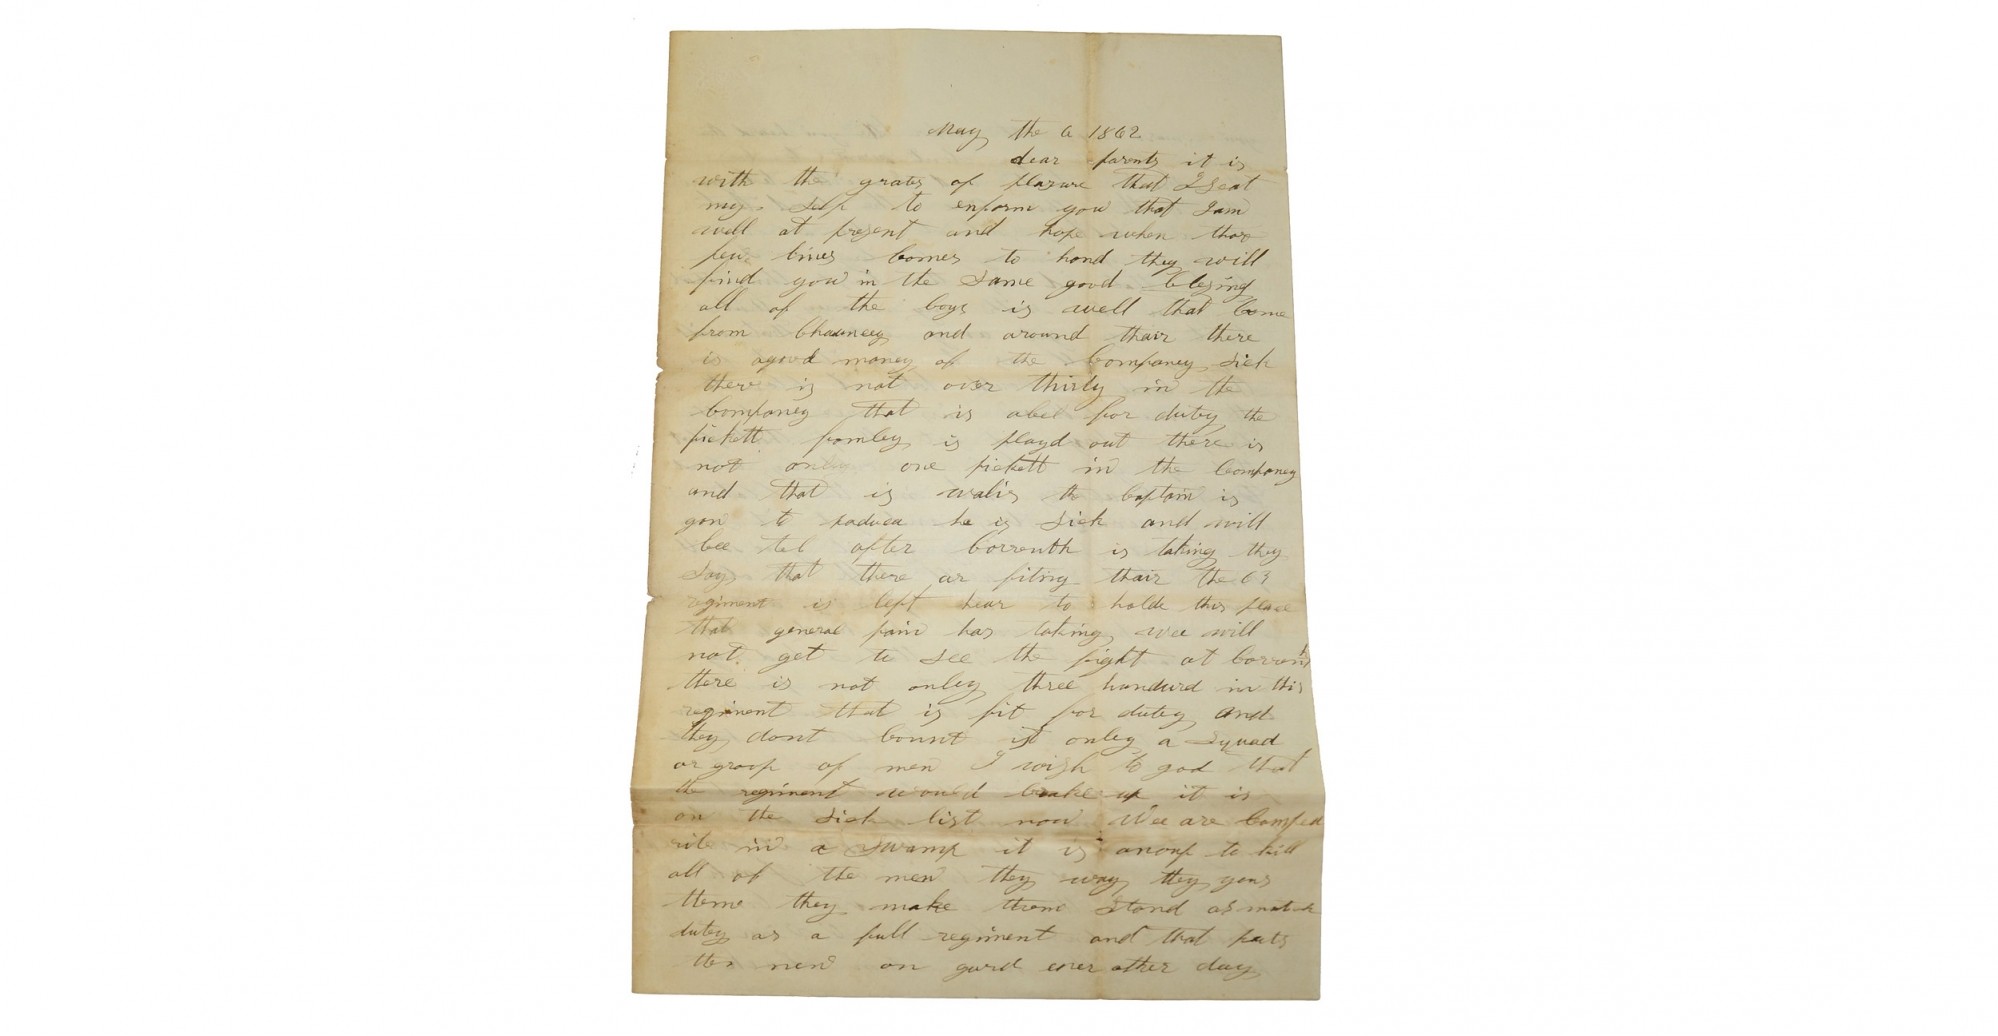 May the 6 1862
dear parents it is
with the grates of plasure that I Seat
my Self to enform you that I am
well at present and hope when thos
few lines Comes to hand they will
find you in the Same good blesing
all of the boys is well that Come
from Chauncey and around thair there
is agood maney of the Companey Sick
there is not over thirty in the
Companey that is abel for dutey the
pickett famley is playd out there is
not only one pickett in the Companey
and that is walis the Captain is
gon to paduca he is Sick and will
bee tel after Correnth is taking they
Say that there ar fiting thair the 63
regiment is left hear to holde this place
that general pain has taking wee will
not get to See the fight at Correnth
there is not onley three hundurd in this
regiment that is fit for dutey and
they dont Counst ist onley a Squad
or groop of men I wish to god that
the regiment would brake up it is
on the Sick list now Wee are Camped
in a Swamp it is anouf to kill
all of the men they way they yous
theme they make theme Stand as
dutey as a full regiment and that puts
the men on gard ever other day